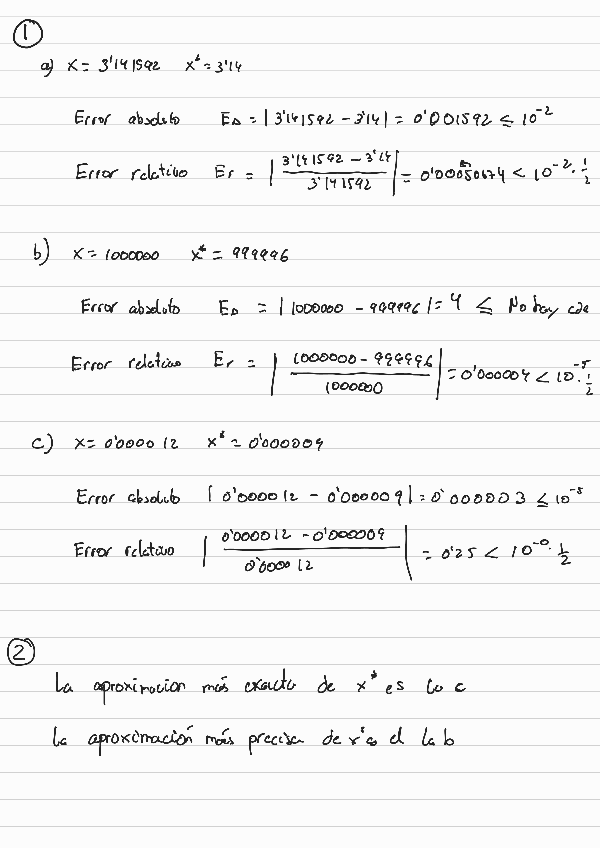 1
a) x = 3'141592 x* = 3'14
Error absoluto E_a = |3'141592 - 3'14| = 0'001592 ≤ 10^-2
Error relativo E_r = |(3'141592 - 3'14) / 3'141592| = < 10^-2 · 1/2
b) x = 1000000 x* = 999996
Error absoluto E_a = |1000000 - 999996| = 4 ≤ No hay
Error relativo E_r = |(1000000 - 999996) / 1000000| = 0'000004 < 10^-5 · 1/2
c) x = 0'000012 x* = 0'000009
Error absoluto |0'000012 - 0'000009| = 0'000003 ≤ 10^-5
Error relativo |(0'000012 - 0'000009) / 0'000012| = 0'25 < 10^-0 · 1/2
2
La aproximacion más exacta de x* es la c
La aproximación más precisa de x* es el la b